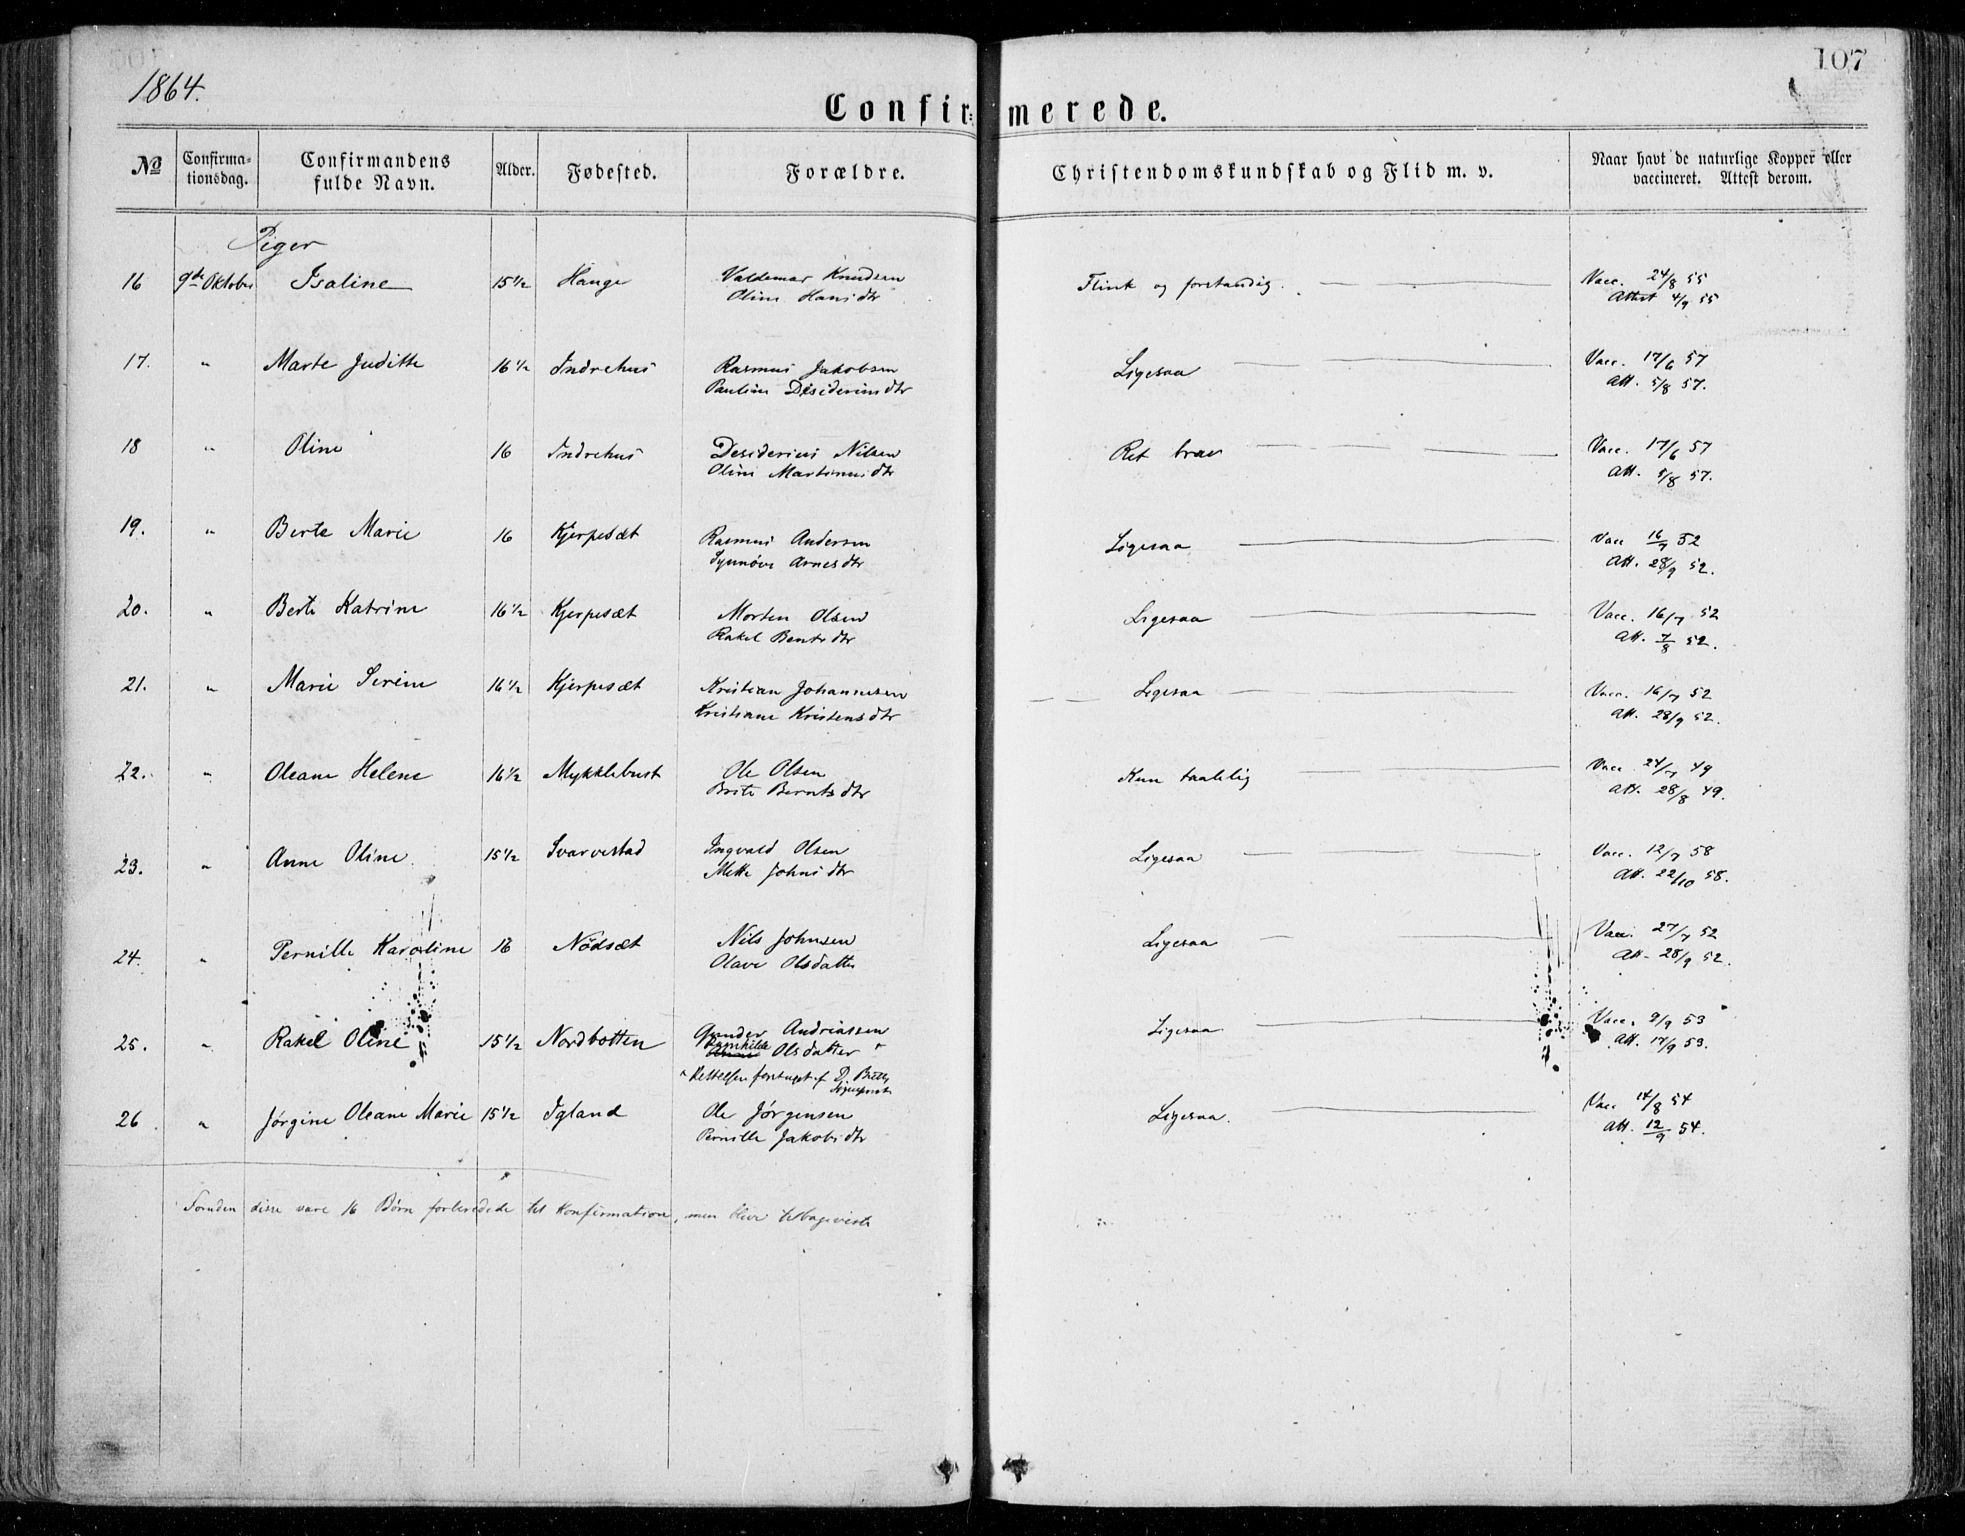 107
1864.
Confirmerede.
No Confirmationsdag. Confirmandens fulde Navn. Alder. Fødested. Forældre. Christendomskundskab og Flid m. v. Naar havt de naturlige Kopper eller vaccineret. Attest derom.
Piger
16 9de Oktober Isaline 15 1/2 Hauge Valdemar Knudsen Flink og forstandig. Vacc. 24/8 55
Oline Hansdtr Attest 4/9 55
17. " Marte Juditte 16 1/2 Indrehus Rasmus Jakobsen Ligesaa Vacc. 17/6 57
Pauline Desideriusdtr Att. 5/8 57.
18 " Oline 16 Indrehus Desiderius Nilsen Ret brav Vacc. 17/6 57
Oline Martinusdtr Att. 5/8 57.
19. " Berte Marie 16 Kjerpesæt Rasmus Andersen Ligesaa Vacc 16/7 52
Synnøve Arnesdtr Att. 28/9 52.
20. " Berte Katrine 16 1/2 Kjerpesæt Morten Olsen Ligesaa Vacc. 16/7 52
Rakel Bentsdtr Att. 7/8 52.
21. " Marie Serine 16 1/2 Kjerpesæt Kristian Johannesen Ligesaa Vacc. 16/7 52
Kristiane Kristensdtr Att. 28/9 52.
22. " Oleane Helene 16 1/2 Mykklebust Ole Olsen Kun taalelig Vacc 24/7 49
Brite Berntsdtr Att. 28/8 49.
23. " Anne Oline 15 1/2 Svarvestad Ingvald Olsen Ligesaa Vacc. 12/7 58
Mette Johnsdtr Att. 22/10 58.
24. " Pernille Karoline 16 Nødsæt Nils Johnsen Ligesaa Vacc. 27/7 52
Olave Olsdatter Att. 28/9 52.
25. " Rakel Oline 15 1/2 Nordbotten Gunder Andriassen Ligesaa Vacc. 9/9 53
Ramhilde Olsdatter * Att. 17/9 53.
* Rettelsen foretaget af
Sogneprest
26 " Jørgine Oleane Marie 15 1/2 Igland Ole Jørgensen Ligesaa. Vacc 14/8 54
Pernille Jakobsdtr Att. 12/9 54.
Foruden disse vare 16 Børn forberedede til Konfirmation, men bleve tilbageviste